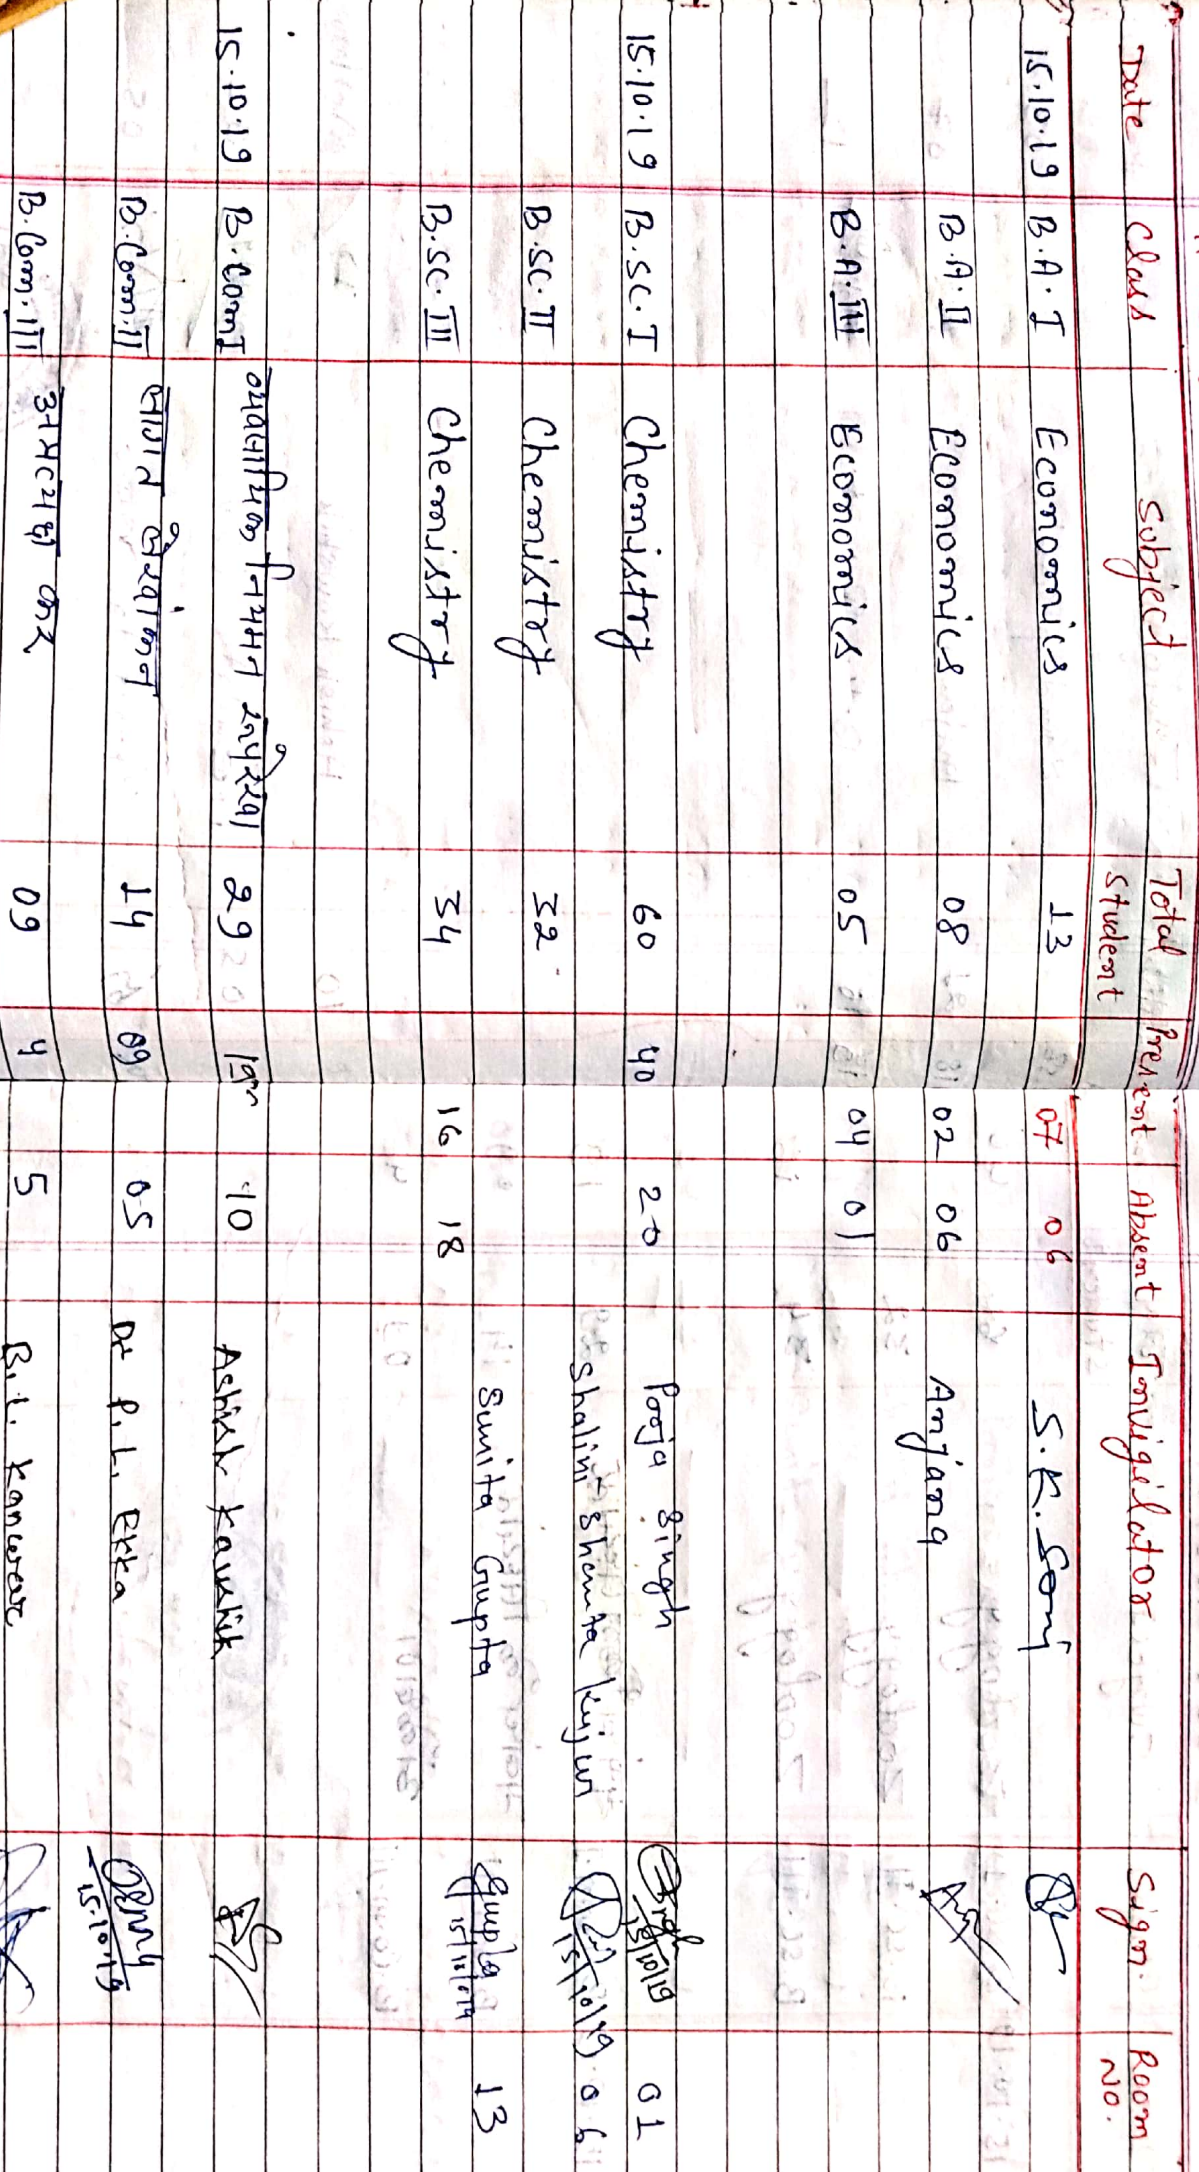 Date Class Subject Total Student Present Absent Invigilator Sign. Room No.
15.10.19 B.A.I Economics 13 07 06 S.K. Soni
B.A.II Economics 08 02 06 Anjana
B.A.III Economics 05 04 01
15.10.19 B.SC.I Chemistry 60 40 20 Pooja Singh 15/10/19 01
B.SC.II Chemistry 32 Shalini Shamita Kujur 15/10/19 06
B.SC.III Chemistry 34 16 18 Sunita Gupta Gupta 15/10/019 13
15.10.19 B.Com I व्यवसायिक नियमन रूपरेखा 29 19 10 Ashish Kaushik
B.Com.II लागत लेखांकन 14 09 05 Dr P.L. Ekka 15.10.19
B.Com.III अप्रत्यक्ष कर 09 4 5 B.L. Kanwar